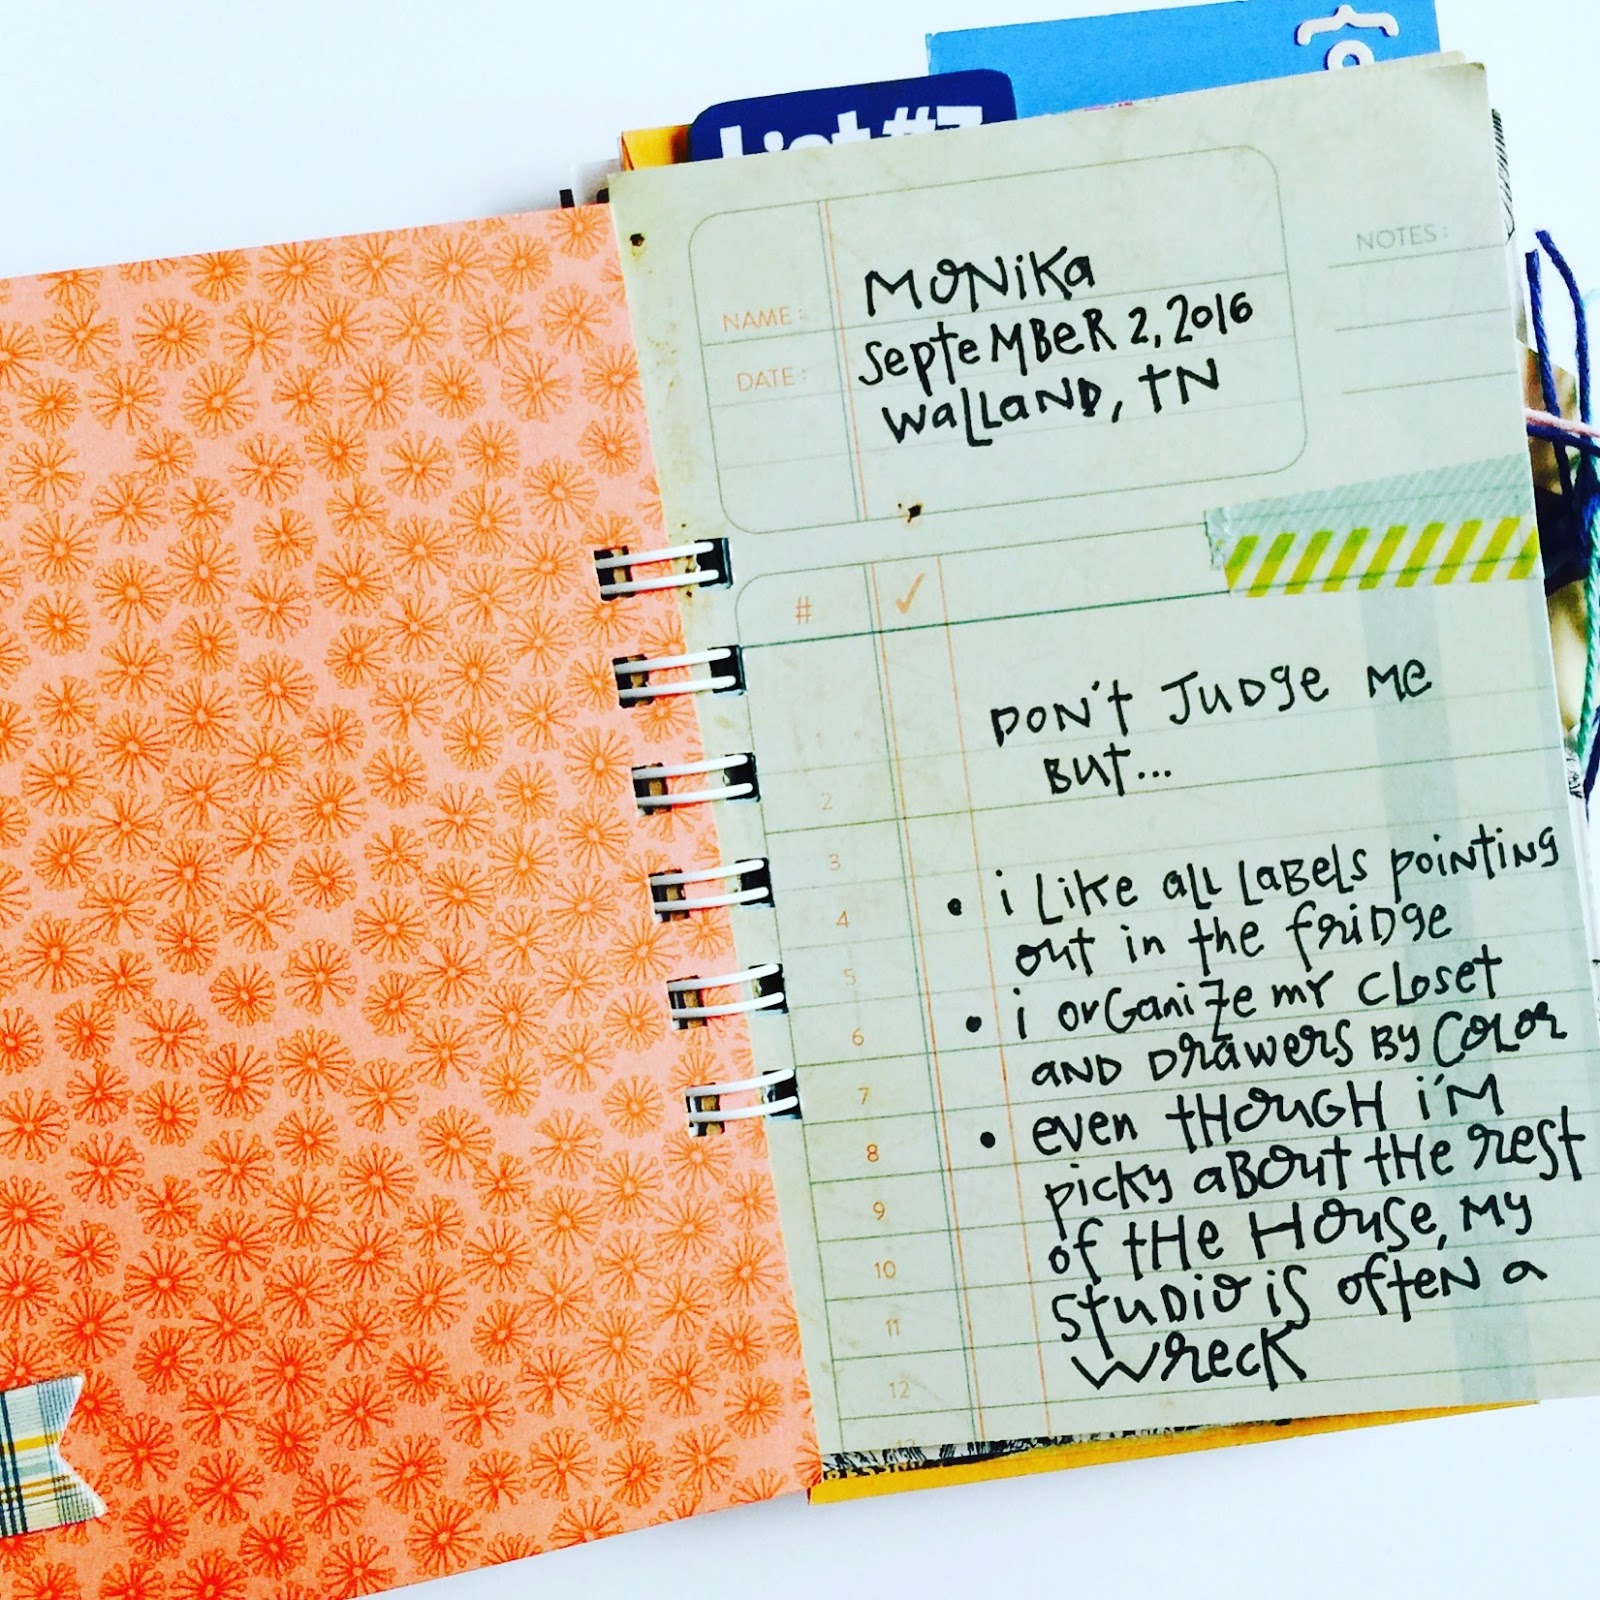 List #7
NOTES:
NAME: MONiKa
September 2, 2016
DATE:
WaLLaND, TN
# ✓
DON'T JUDGe Me
BUT...
2
3
• i Like all LaBeLs pointing
4
out in the fridge
5
• i orGanize my closet
6
AND Drawers By COLOr
7
• even tHOUGH i'M
8
picky aBout tHe rest
9
of tHe House, My
10
studio is often a
11
wreck
12